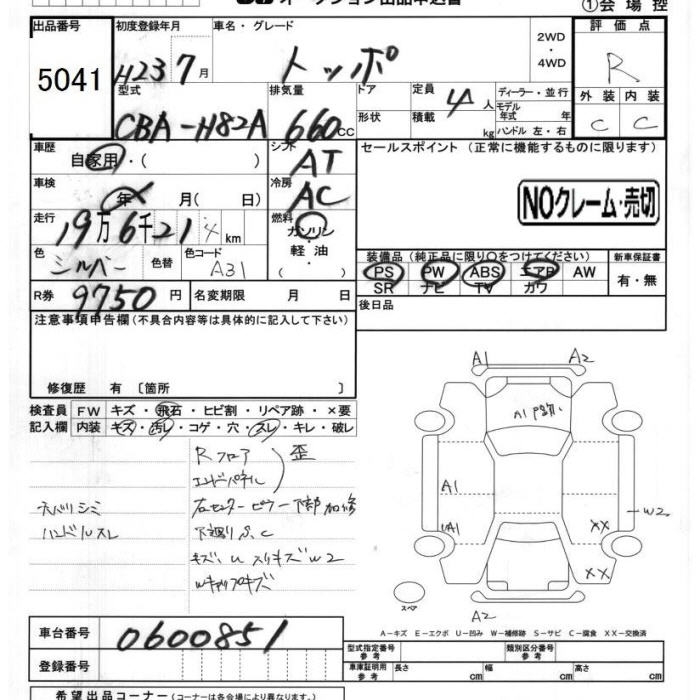 ①会場控
出品番号
5041
初度登録年月
H23 7月
車名・グレード
トッポ
2WD
・
4WD
評価点
R
外装 内装
C C
型式
CBA-H82A
排気量
660cc
ドア
形状
定員
4人
積載
kg
ディーラー・並行
モデル
年式 年
ハンドル 左・右
車歴
自家用・( )
シフト
AT
セールスポイント (正常に機能するものに限ります)
NOクレーム・売切
車検
年 月( 日)
冷房
AC
走行
19万6千21 km
燃料
ガソリン
・
軽油
・
( )
色
シルバー
色替
色コード
A31
装備品(純正品に限り○をつけてください)
PS PW ABS エアB AW
SR ナビ TV カワ
新車保証書
有・無
R券 9750円
名変期限 月 日
後日品
注意事項申告欄(不具合内容等は具体的に記入して下さい)
修復歴 有 〔箇所 〕
検査員
記入欄
FW キズ・飛石・ヒビ割・リペア跡・×要
内装 キズ・汚レ・コゲ・穴・スレ・キレ・破レ
Rフロア
エンドパネル
歪
ネバリシミ
ハンドルスレ
右センターピラー下部加修
下廻りS、C
キズ、U スリキズW2
Wキャップキズ
A1 A2
A1
A1
A1
W2
XX
XX
A2
スペア
A-キズ E-エクボ U-凹み W-補修跡 S-サビ C-腐食 XX-交換済
車台番号 0600851
登録番号
型式指定番号
参考
類別区分番号
参考
車庫証明用
参考
長さ cm 幅 cm 高さ cm
希望出品コーナー(コーナーは各会場により異なります)